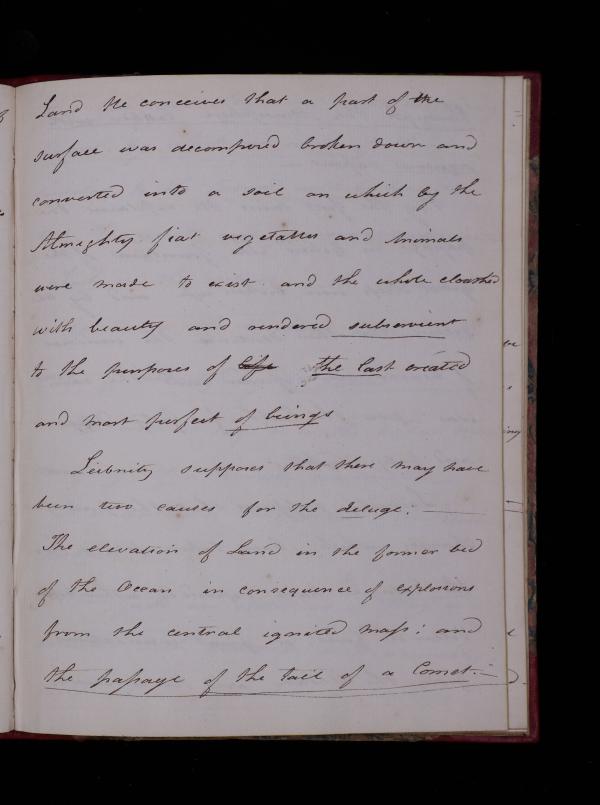 Land He conceives that a part of the
surface was decomposed broken down and
converted into a soil on which by the
Almighty fiat vegetables and Animals
were made to exist and the whole cloathed
with beauty and rendered subservient
to the purposes of life the last created
and most perfect of beings
Leibnitz supposes that there may have
been two causes for the deluge:
The elevation of Land in the former bed
of the Ocean in consequence of explosions
from the central ignited mass: and
the passage of the tail of a Comet.—